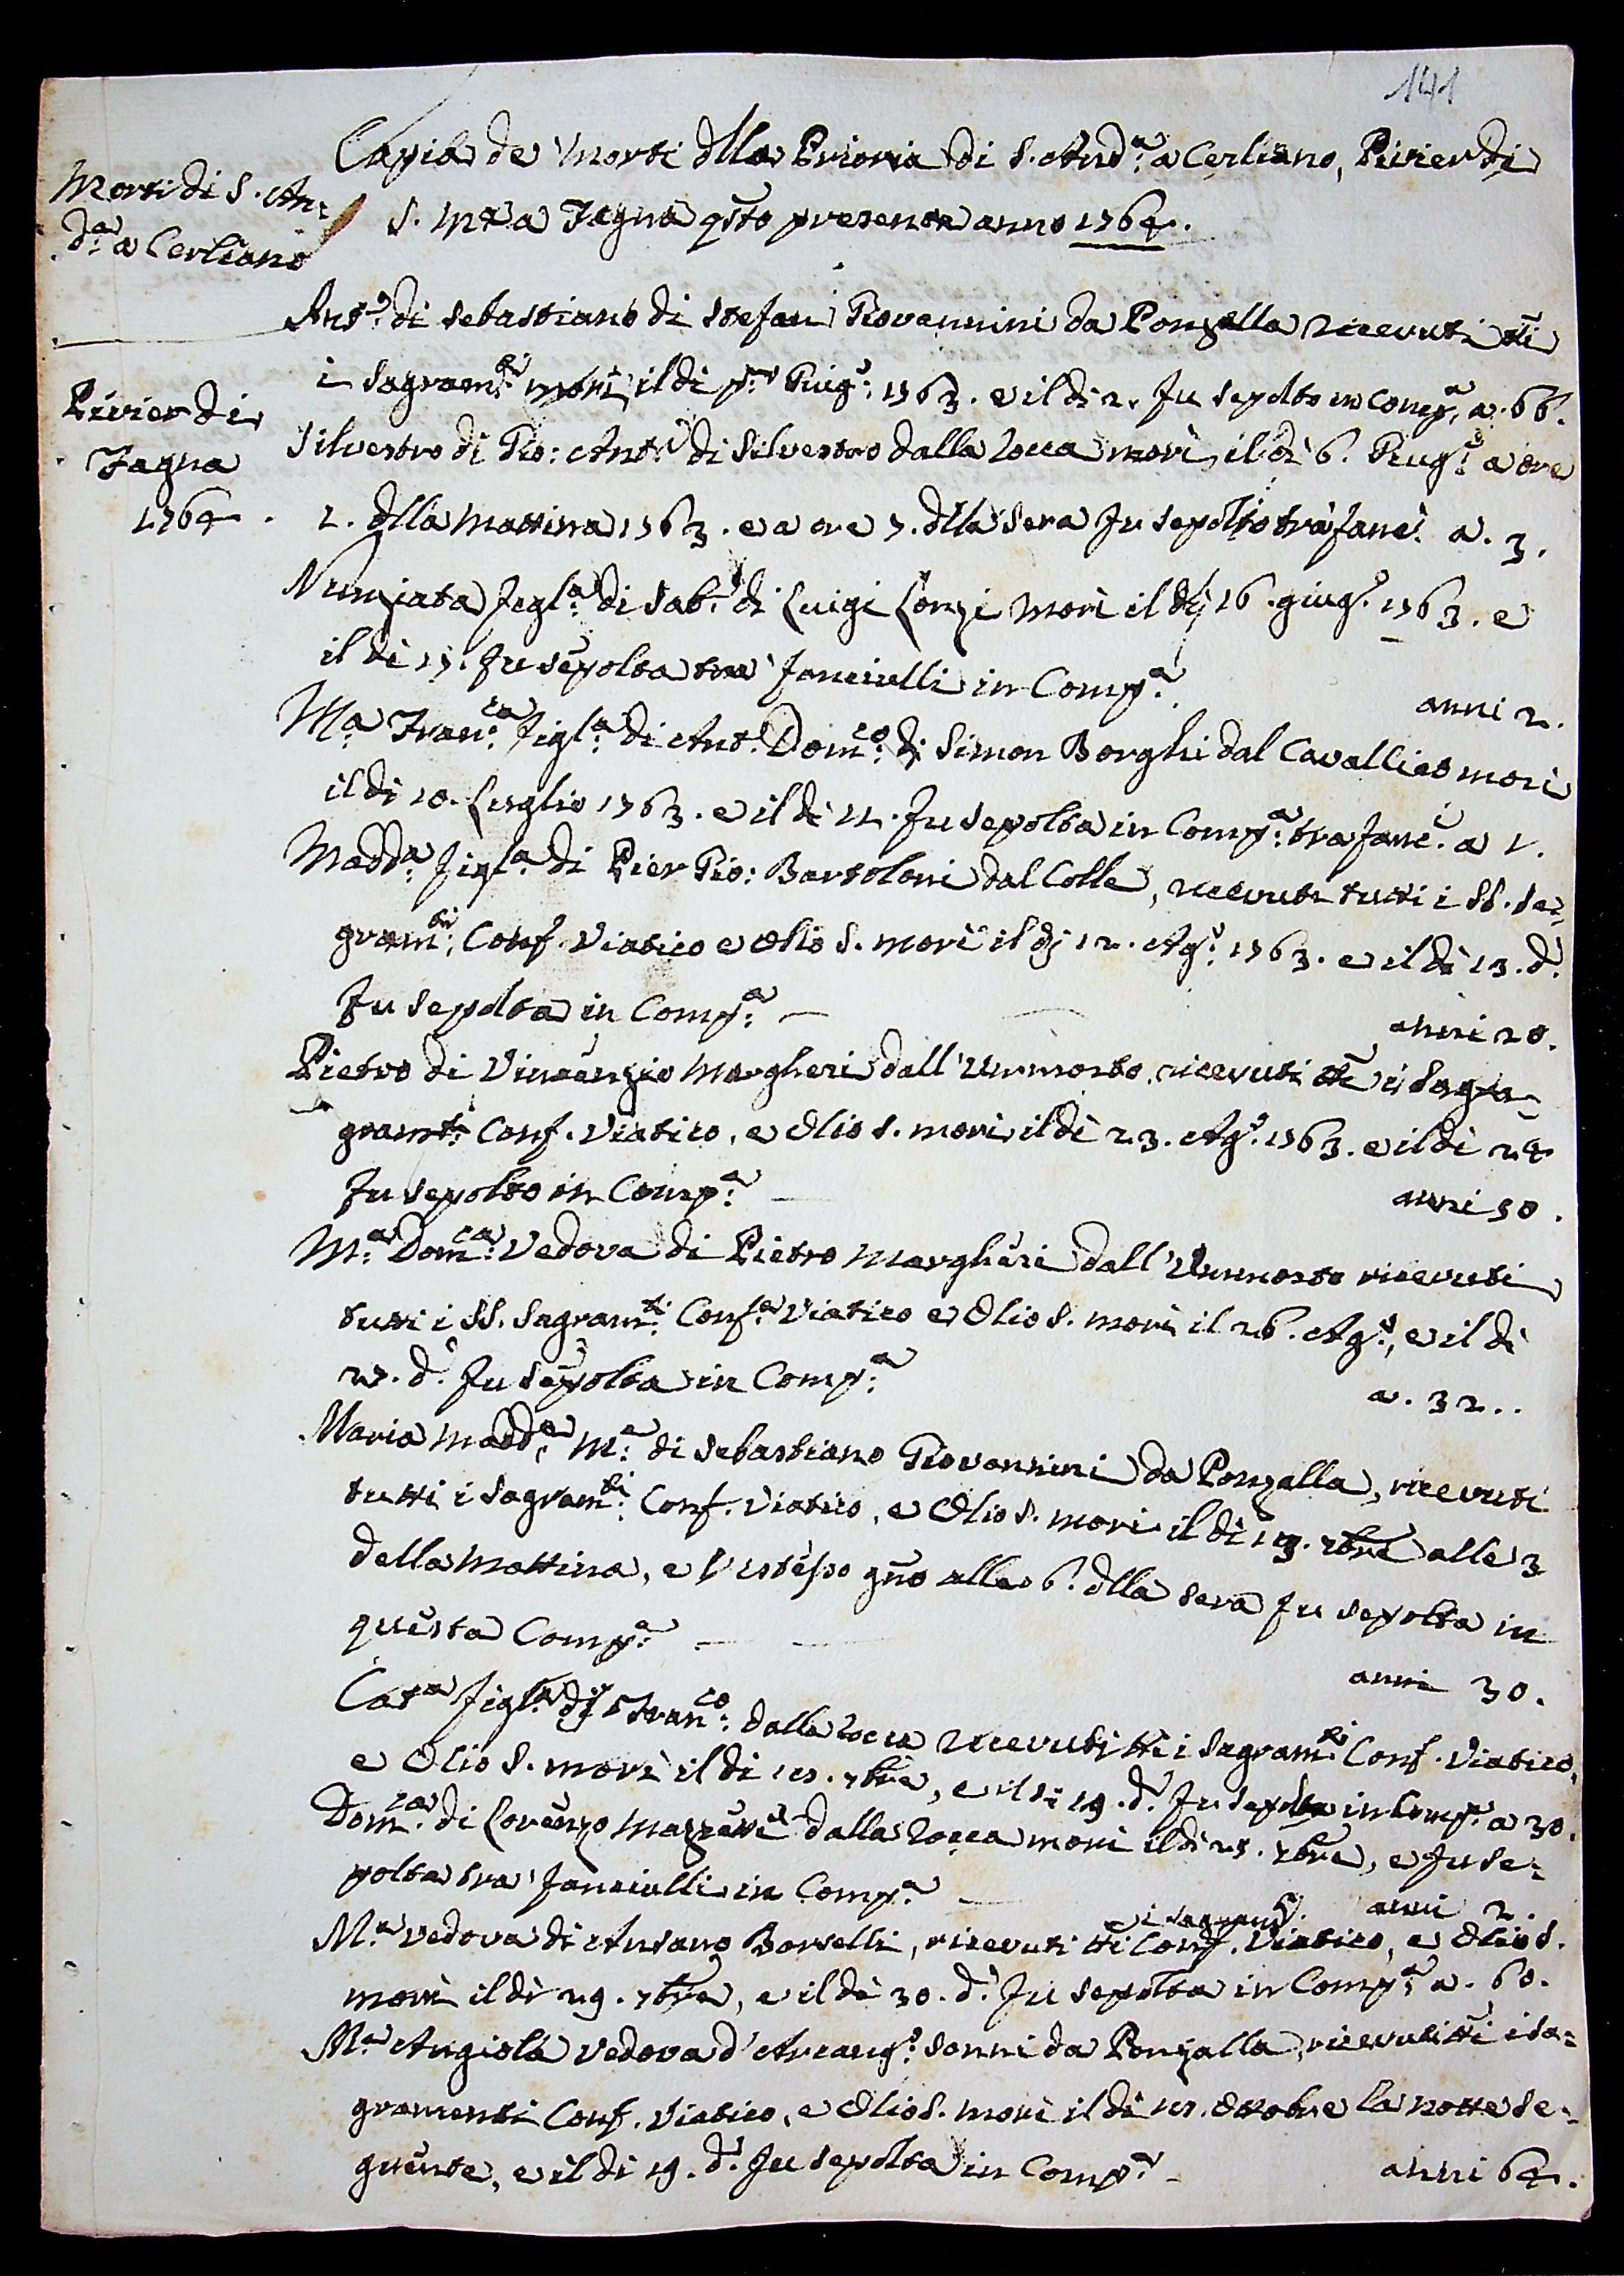 141
Copia de Morti dlla Prioria di S. And.a a Cerliano, Pivier di
S. Ma a Fagna qsto presente anno 1764.
Morti di S. An=
d.a a Cerliano
Pivier di
Fagna
1764.
Ant.o di Sebastiano di Stefan Giovannini da Ponzalla ricevuti tti
i Sagram.ti morì il di p.mo Giug.o 1763. e il di 2. fu sepolto in Comp.a a. 66.
Silvestro di Gio: Ant.o di Silvestro dalla Rocca morì il dì 6. Giug.o a ore
2. dlla mattina 1763. e a ore 7. dlla sera fu sepolto tra fanc.i a. 3.
Nunziata figl.a di Sab.o di Luigi Lonzi morì il dì 16. giug.o 1763. e
il dì 17. fu sepolta tra fanciulli in Comp.a anni 2.
M.a Fran.ca figl.a di Ant.o Dom.co di Simon Borghi dal Cavallico morì
il dì 10. Luglio 1763. e il dì 11. fu sepolta in Comp.a tra fanc.i a 1.
Madd.a figl.a di Pier Gio: Bartoloni dal Colle, ricevuti tutti i SS. Sa=
gram.ti, Conf. Viatico e Olio S. morì il dì 12. Ag.o 1763. e il dì 13. d.o
fu sepolta in Comp.a — anni 20.
Pietro di Vincenzio Margheri dall'Unmorto ricevuti tti i Sagra=
gram.ti Conf. Viatico, e Olio S. morì il dì 23. Ag.o 1763. e il dì 24
fu sepolto in Comp.a — anni 50.
M.a Dom.ca Vedova di Pietro Margheri dall'Unmorto ricevuti
tutti i SS. Sagram.ti Conf.e Viatico e Olio S. morì il 26. Ag.o, e il dì
27. d.o fu sepolta in Comp.a a. 32..
Maria Madd.a M.e di Sebastiano Giovannini da Ponzalla, ricevuti
tutti i Sagram.ti Conf. Viatico, e Olio S. morì il dì 13. 7bre alle 3
della Mattina, e l'istesso gno alle 6. dlla sera fu sepolta in
questa Comp.a — anni 30.
Cat.a figl.a di Fran.co dalla Rocca ricevuti tti i Sagram.ti Conf. Viatico,
e Olio S. morì il dì 18. 7bre, e il dì 19. d.o fu sepolta in Comp.a a 30.
Dom.ca di Lorenzo dalla Rocca morì il dì 25. 7bre, e fu se=
polta tra fanciulli in Comp.a — anni 2.
i Sagram.ti
M.a vedova di Ansano Borselli, ricevuti tti Conf. Viatico, e Olio S.
morì il dì 29. 7bre, e il dì 30. d.o fu sepolta in Comp.a a. 60.
M.a Angiola vedova d'Arcang.o Sonni da Ponzalla, ricevuti tti i Sa=
gramenti Conf. Viatico, e Olio S. morì il dì 18. Ottobre la notte se=
guente, e il di 19. d.o fu sepolta in Comp.a - anni 64.